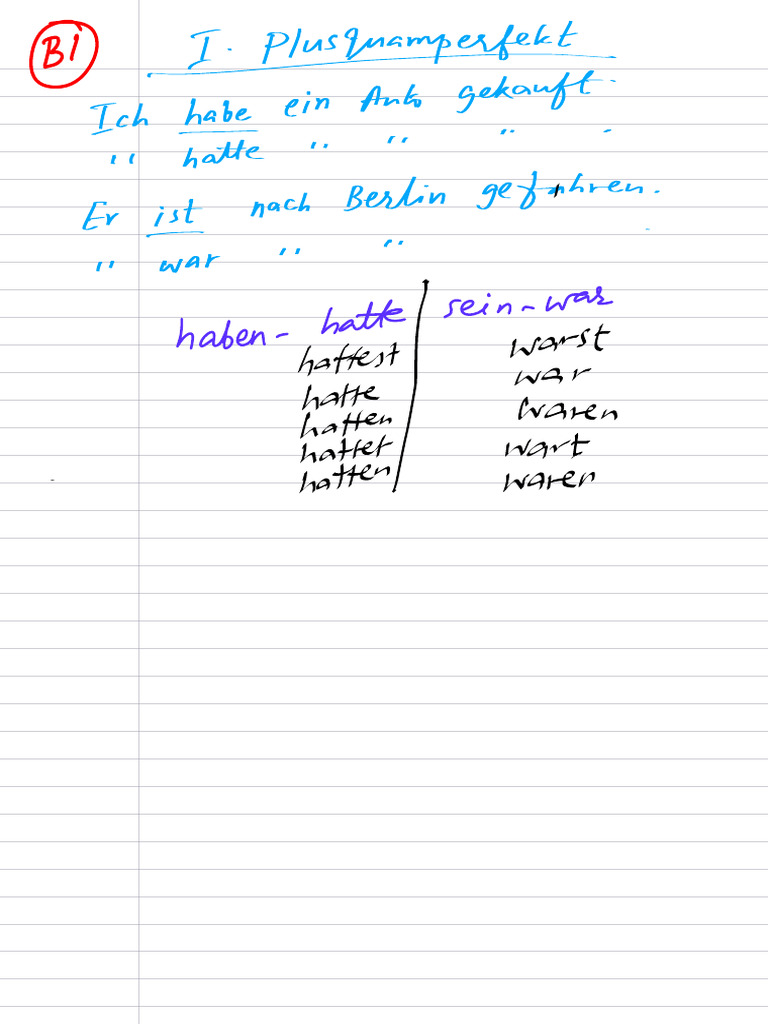 B1
I. Plusquamperfekt
Ich habe ein Auto gekauft.
" hatte " " " .
Er ist nach Berlin gefahren.
" war " " .
haben - hatte | sein - war
hattest warst
hatte war
hatten waren
hattet wart
hatten waren